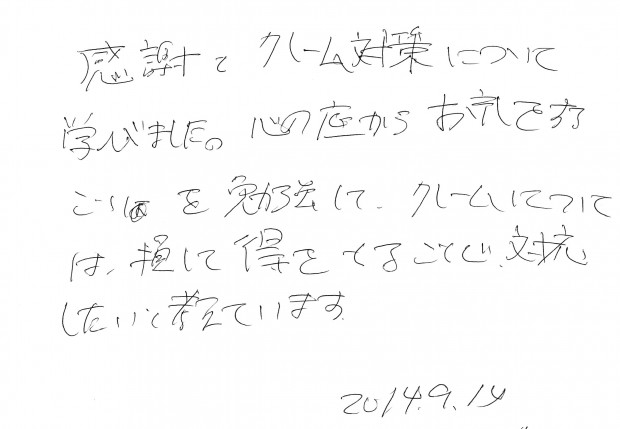 感謝とクレーム対策について
学びました。心の底からお礼をする
ことを勉強して、クレームについて
は、損して得をとることで、対応
したいと考えています
2014.9.14